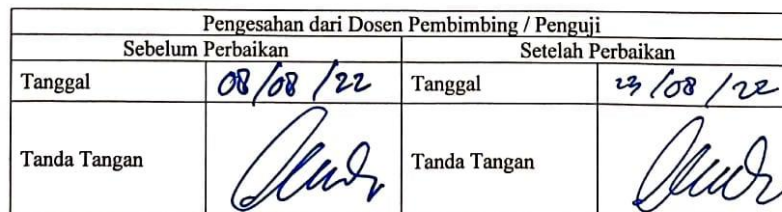 Pengesahan dari Dosen Pembimbing / Penguji
Sebelum Perbaikan Setelah Perbaikan
Tanggal 08/08/22 Tanggal 23/08/22
Tanda Tangan Tanda Tangan